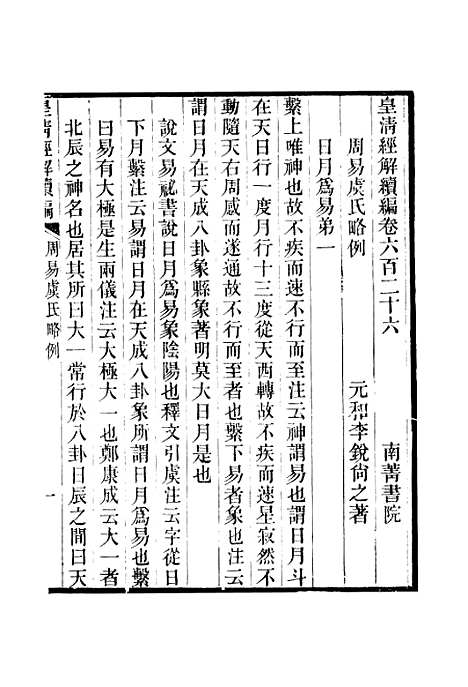 皇清經解續編卷六百二十六　南菁書院
周易虞氏略例　元和李銳尙之著
日月爲易弟一
繫上唯神也故不疾而速不行而至注云神謂易也謂日月斗
在天日行一度月行十三度從天西轉故不疾而速星寂然不
動隨天右周感而遂通故不行而至者也繫下易者象也注云
謂日月在天成八卦象縣象著明莫大日月是也
說文易祕書說日月爲易象陰陽也釋文引虞注云字從日
下月繫注云易謂日月在天成八卦象所謂日月爲易也繫
曰易有大極是生兩儀注云大極大一也鄭康成云大一者
北辰之神名也居其所曰大一常行於八卦日辰之間曰天
皇淸經解續編　周易虞氏略例　一